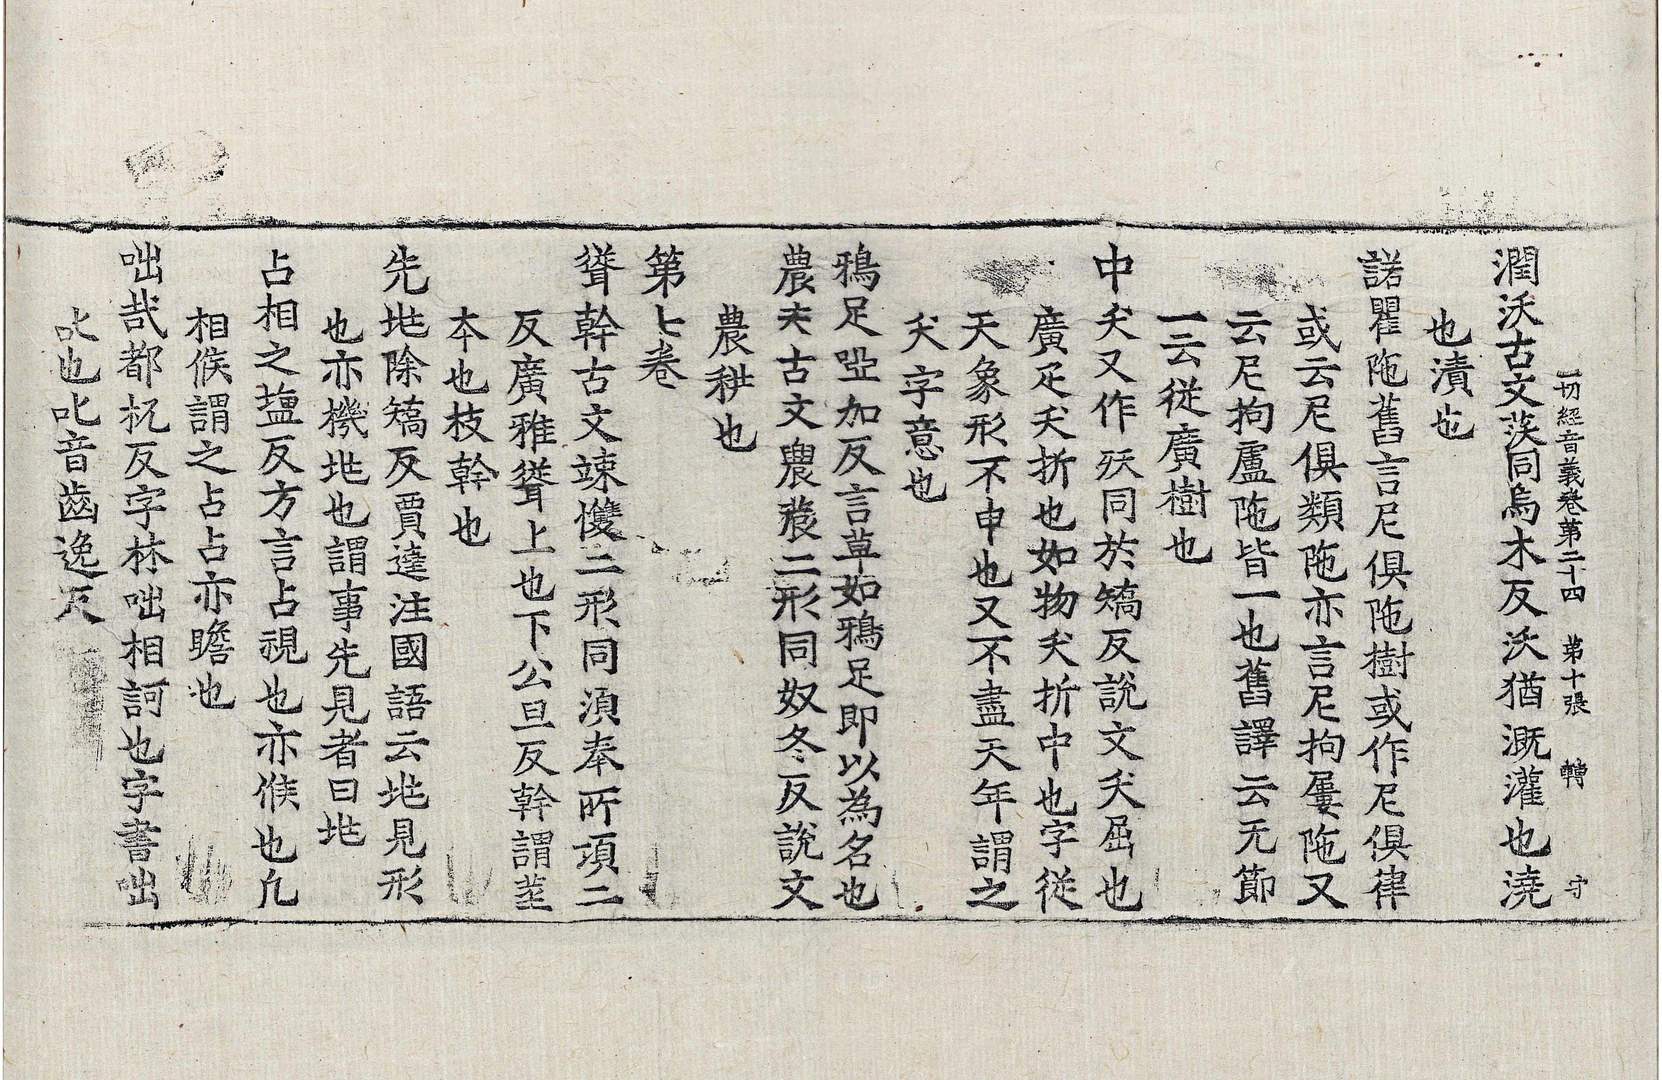 一切經音義卷第二十四 第十張 轉 守
潤沃古文渶同烏木反沃猶溉灌也澆
也漬也
諾瞿陁舊言尼俱陁樹或作尼俱律
或云尼俱類陁亦言尼拘屢陁又
云尼拘盧陁皆一也舊譯云无節
一云從廣樹也
中夭又作殀同於矯反說文夭屈也
廣疋夭折也如物夭折中也字從
天象形不申也又不盡天年謂之
夭字意也
鴉足啞加反言草如鴉足即以為名也
農夫古文䢉莀二形同奴冬反說文
農耕也
第七卷
聳幹古文竦㩳二形同湏奉所項二
反廣雅聳上也下公旦反幹謂莖
本也枝幹也
先兆除矯反賈逵注國語云兆見形
也亦機兆也謂事先見者曰兆
占相之壇反方言占視也亦候也凢
相候謂之占占亦瞻也
咄哉都杌反字林咄相訶也字書出
叱也叱音齒逸反